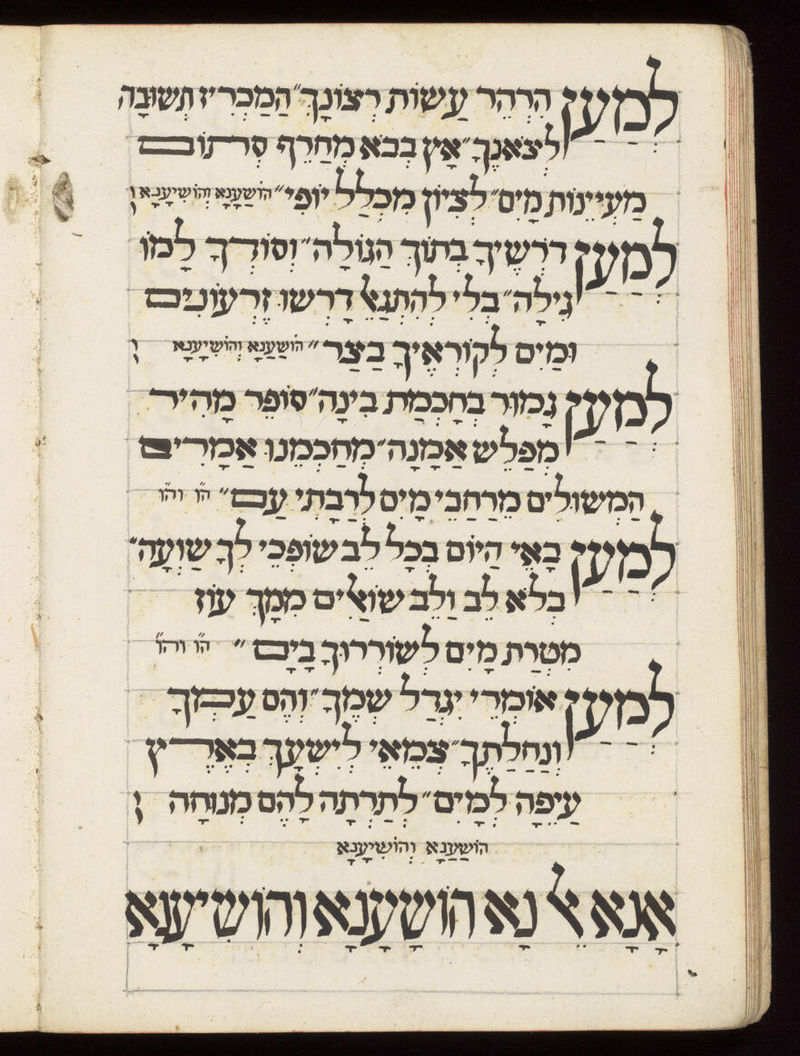 לְמַעַן הִרְהֵר עֲשׂוֹת רְצוֹנָךְ״ הַמַכְרִיז תְשׁוּבָה
לְצֹאנֶךָ״ אָץ בְבֹא מְחָרֵף סְתוֹם
מַעְיְינוֹת מַיִם״ לְצִיוֹן מִכְלַל יוֹפִי״ הוֹשַׁעֲנָא וְהוֹשִׁיעָנָא
לְמַעַן דוֹרְשֶׁיךָ בְתוֹךְ הַגוֹלָה״ וְסוֹדְךָ לָמוֹ
נִגְלָה״ בְלִי לְהִתְגָאֵל דָרְשׁוּ זֵרְעוֹנִים
וּמַיִם לְקוֹרְאֶיךָ בַצַר״ הוֹשַׁעֲנָא וְהוֹשִׁיעָנָא
לְמַעַן גָמוּר בְחָכְמַת בִינָה״ סוֹפֵר מָהִיר
מְפַלֵשׁ אֲמָנָה״ מְחַכְמֵנוּ אֲמָרִים
הַמְשׁוּלִים מֵרַחֲבֵי מָיִם לְרַבָתִי עָם״ הו והו
לְמַעַן בָאֵי הַיוֹם בְכָל לֵב שׁוֹפְכֵי לְךָ שַׁוְעָה״
בְלֹא לֵב וָלֵב שׁוֹאֲלִים מִמָךְ עוֹז
מִטְרַת מָיִם לְשׁוֹרְרוּךָ בַיָם״ הו והו
לְמַעַן אוֹמְרֵי יִגְדַל שְׁמֶךָ״ וְהֵם עַמֶךָ
וְנַחֲלָתֶךָ״ צְמֵאֵי לְיִשְׁעָךְ בְאֶרֶץ
עֲיֵפָה לְמָיִם״ לְתַרְתָה לָהֶם מְנוּחָה
הוֹשַׁעֲנָא וְהוֹשִׁיעָנָא
אָנָא אֵל נָא הוֹשַׁעֲנָא וְהוֹשִׁיעָנָא